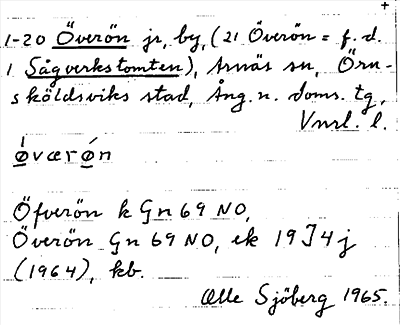 +
1-20 Överön jr, by, (21 Överön = f. d.
1 Sågverkstomten), Arnäs sn, Örn-
sköldsviks stad, Ång. n. doms. tg,
Vnrl. l.
ǿværǿn
Öfverön k Gn 69 NO,
Överön Gn 69 NO, ek 19J4j
(1964), kb.
Olle Sjöberg 1965.